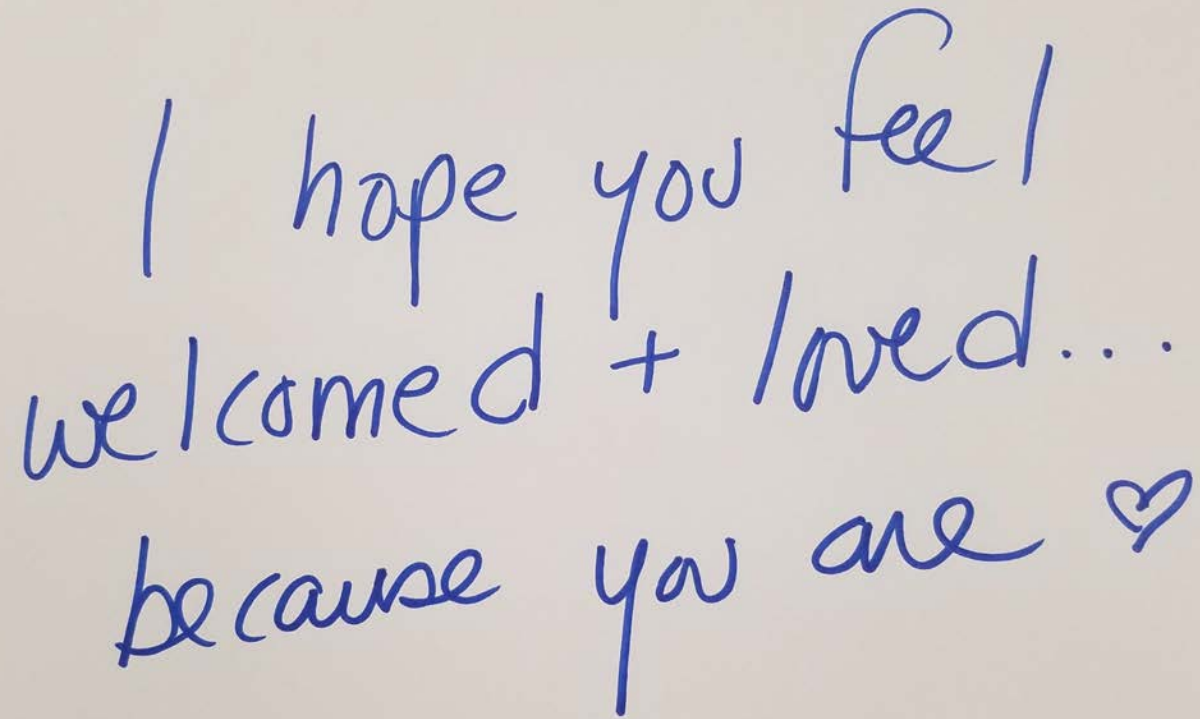 I hope you feel
welcomed + loved...
because you are ♡